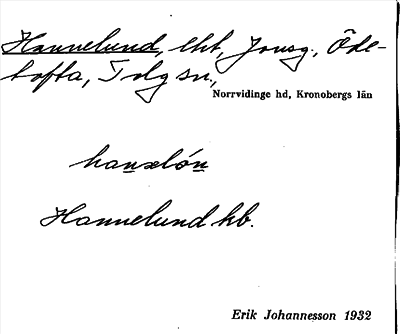 Hannelund, lht, Jonsg., Öde-
tofta, Tolg sn.,
Norrvidinge hd, Kronobergs län
hanəlón
Hannelund hb.
Erik Johannesson 1932